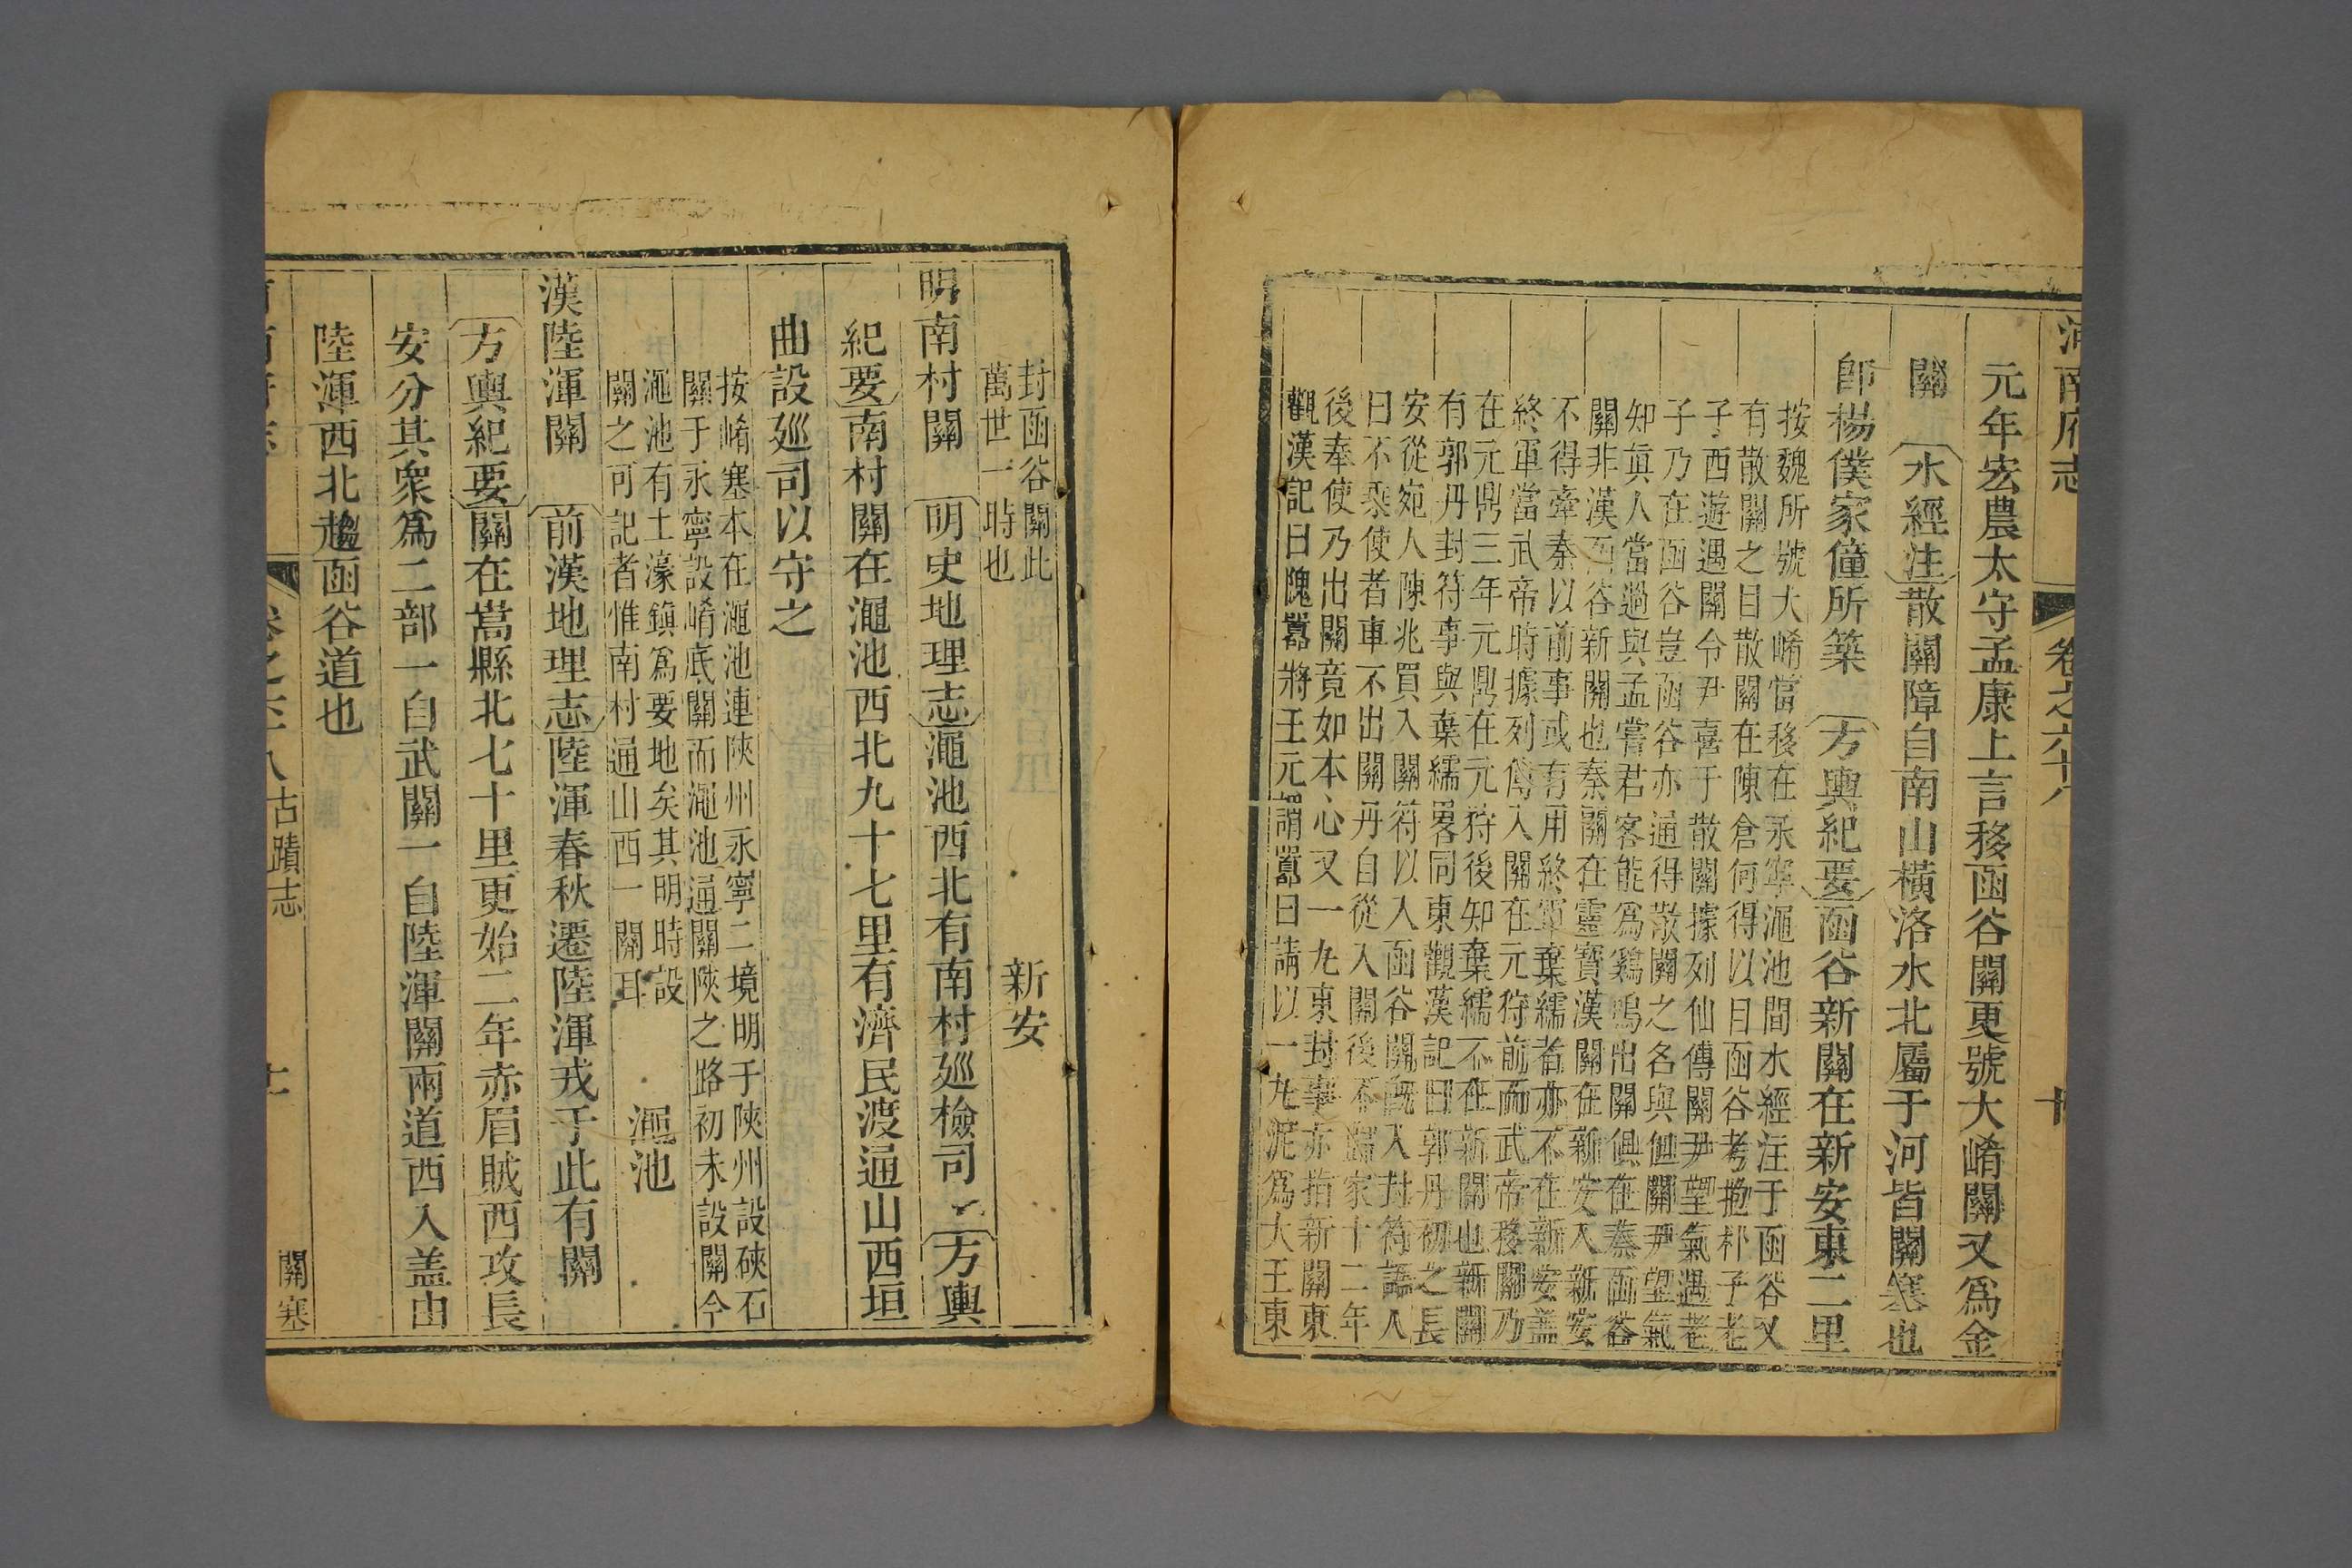 河南府志 卷之六十八 十
元年宏農太守孟康上言移函谷關更號大崤關又爲金
關 水經注散關障自南山橫洛水北屬于河皆關塞也
卽楊僕家僮所築 方輿紀要函谷新關在新安東二里
按魏所號大崤當移在永寧澠池間水經注于函谷又
有散關之目散關在陳倉何得以目函谷考抱朴子老
子西遊遇關令尹喜于散關據列仙傳關尹望氣遇老
子乃在函谷豈函谷亦通得散關之名與但關尹望氣
知眞人當過與孟嘗君客能爲鷄鳴出關俱在秦函谷
關非漢函谷新關也秦關在靈寶漢關在新安入新安
不得牽秦以前事或有用終軍棄繻者亦不在新安蓋
終軍當武帝時據列傳入關在元狩前而武帝移關乃
在元鼎三年元鼎在元狩後知棄繻不在新關也新關
有郭丹封符事與棄繻畧同東觀漢記曰郭丹初之長
安從宛人陳兆買入關符以入函谷關旣入封符語人
曰不乘使者車不出關丹自從入關後不歸家十二年
後奉使乃出關竟如本心又一丸東封事亦指新關東
觀漢記曰隗囂將王元謂囂曰請以一丸泥爲大王東
封函谷關此
萬世一時也 新安
明南村關 明史地理志澠池西北有南村廵檢司 方輿
紀要南村關在澠池西北九十七里有濟民渡通山西垣
曲設廵司以守之
按崤塞本在澠池連陝州永寧二境明于陝州設硤石
關于永寧設崤底關而澠池通關陝之路初未設關今
澠池有土濠鎮爲要地矣其明時設
關之可記者惟南村通山西一關耳 澠池
漢陸渾關 前漢地理志陸渾春秋遷陸渾戎于此有關
方輿紀要關在嵩縣北七十里更始二年赤眉賊西攻長
安分其衆爲二部一自武關一自陸渾關兩道西入盖由
陸渾西北趨函谷道也
卷之六十八 古蹟志 十一 關塞